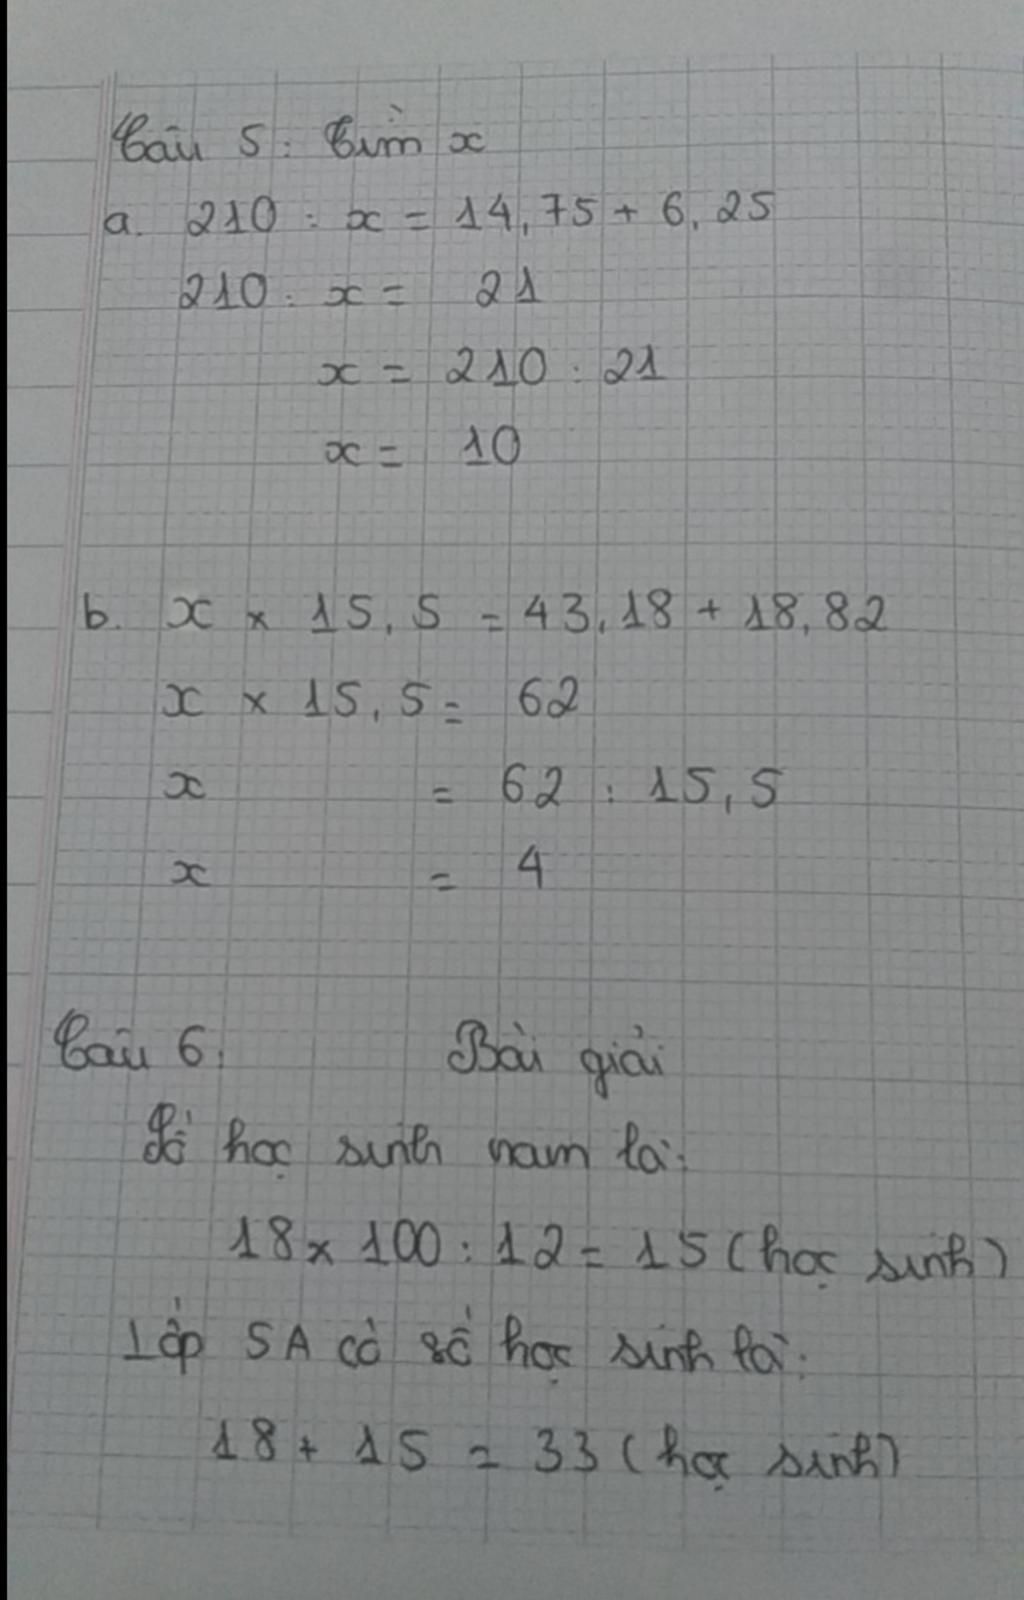 Câu 5: Tìm x
a. 210 : x = 14,75 + 6,25
210 : x = 21
x = 210 : 21
x = 10
b. x × 15,5 = 43,18 + 18,82
x × 15,5 = 62
x = 62 : 15,5
x = 4
Câu 6: Bài giải
Số học sinh nam là:
18 × 100 : 12 = 15 (học sinh)
Lớp 5A có số học sinh là:
18 + 15 = 33 (học sinh)